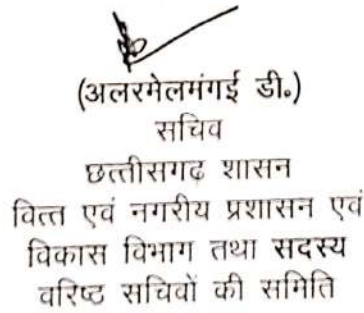 (अलरमेलमंगई डी.)
सचिव
छत्तीसगढ़ शासन
वित्त एवं नगरीय प्रशासन एवं
विकास विभाग तथा सदस्य
वरिष्ट सचिवों की समिति